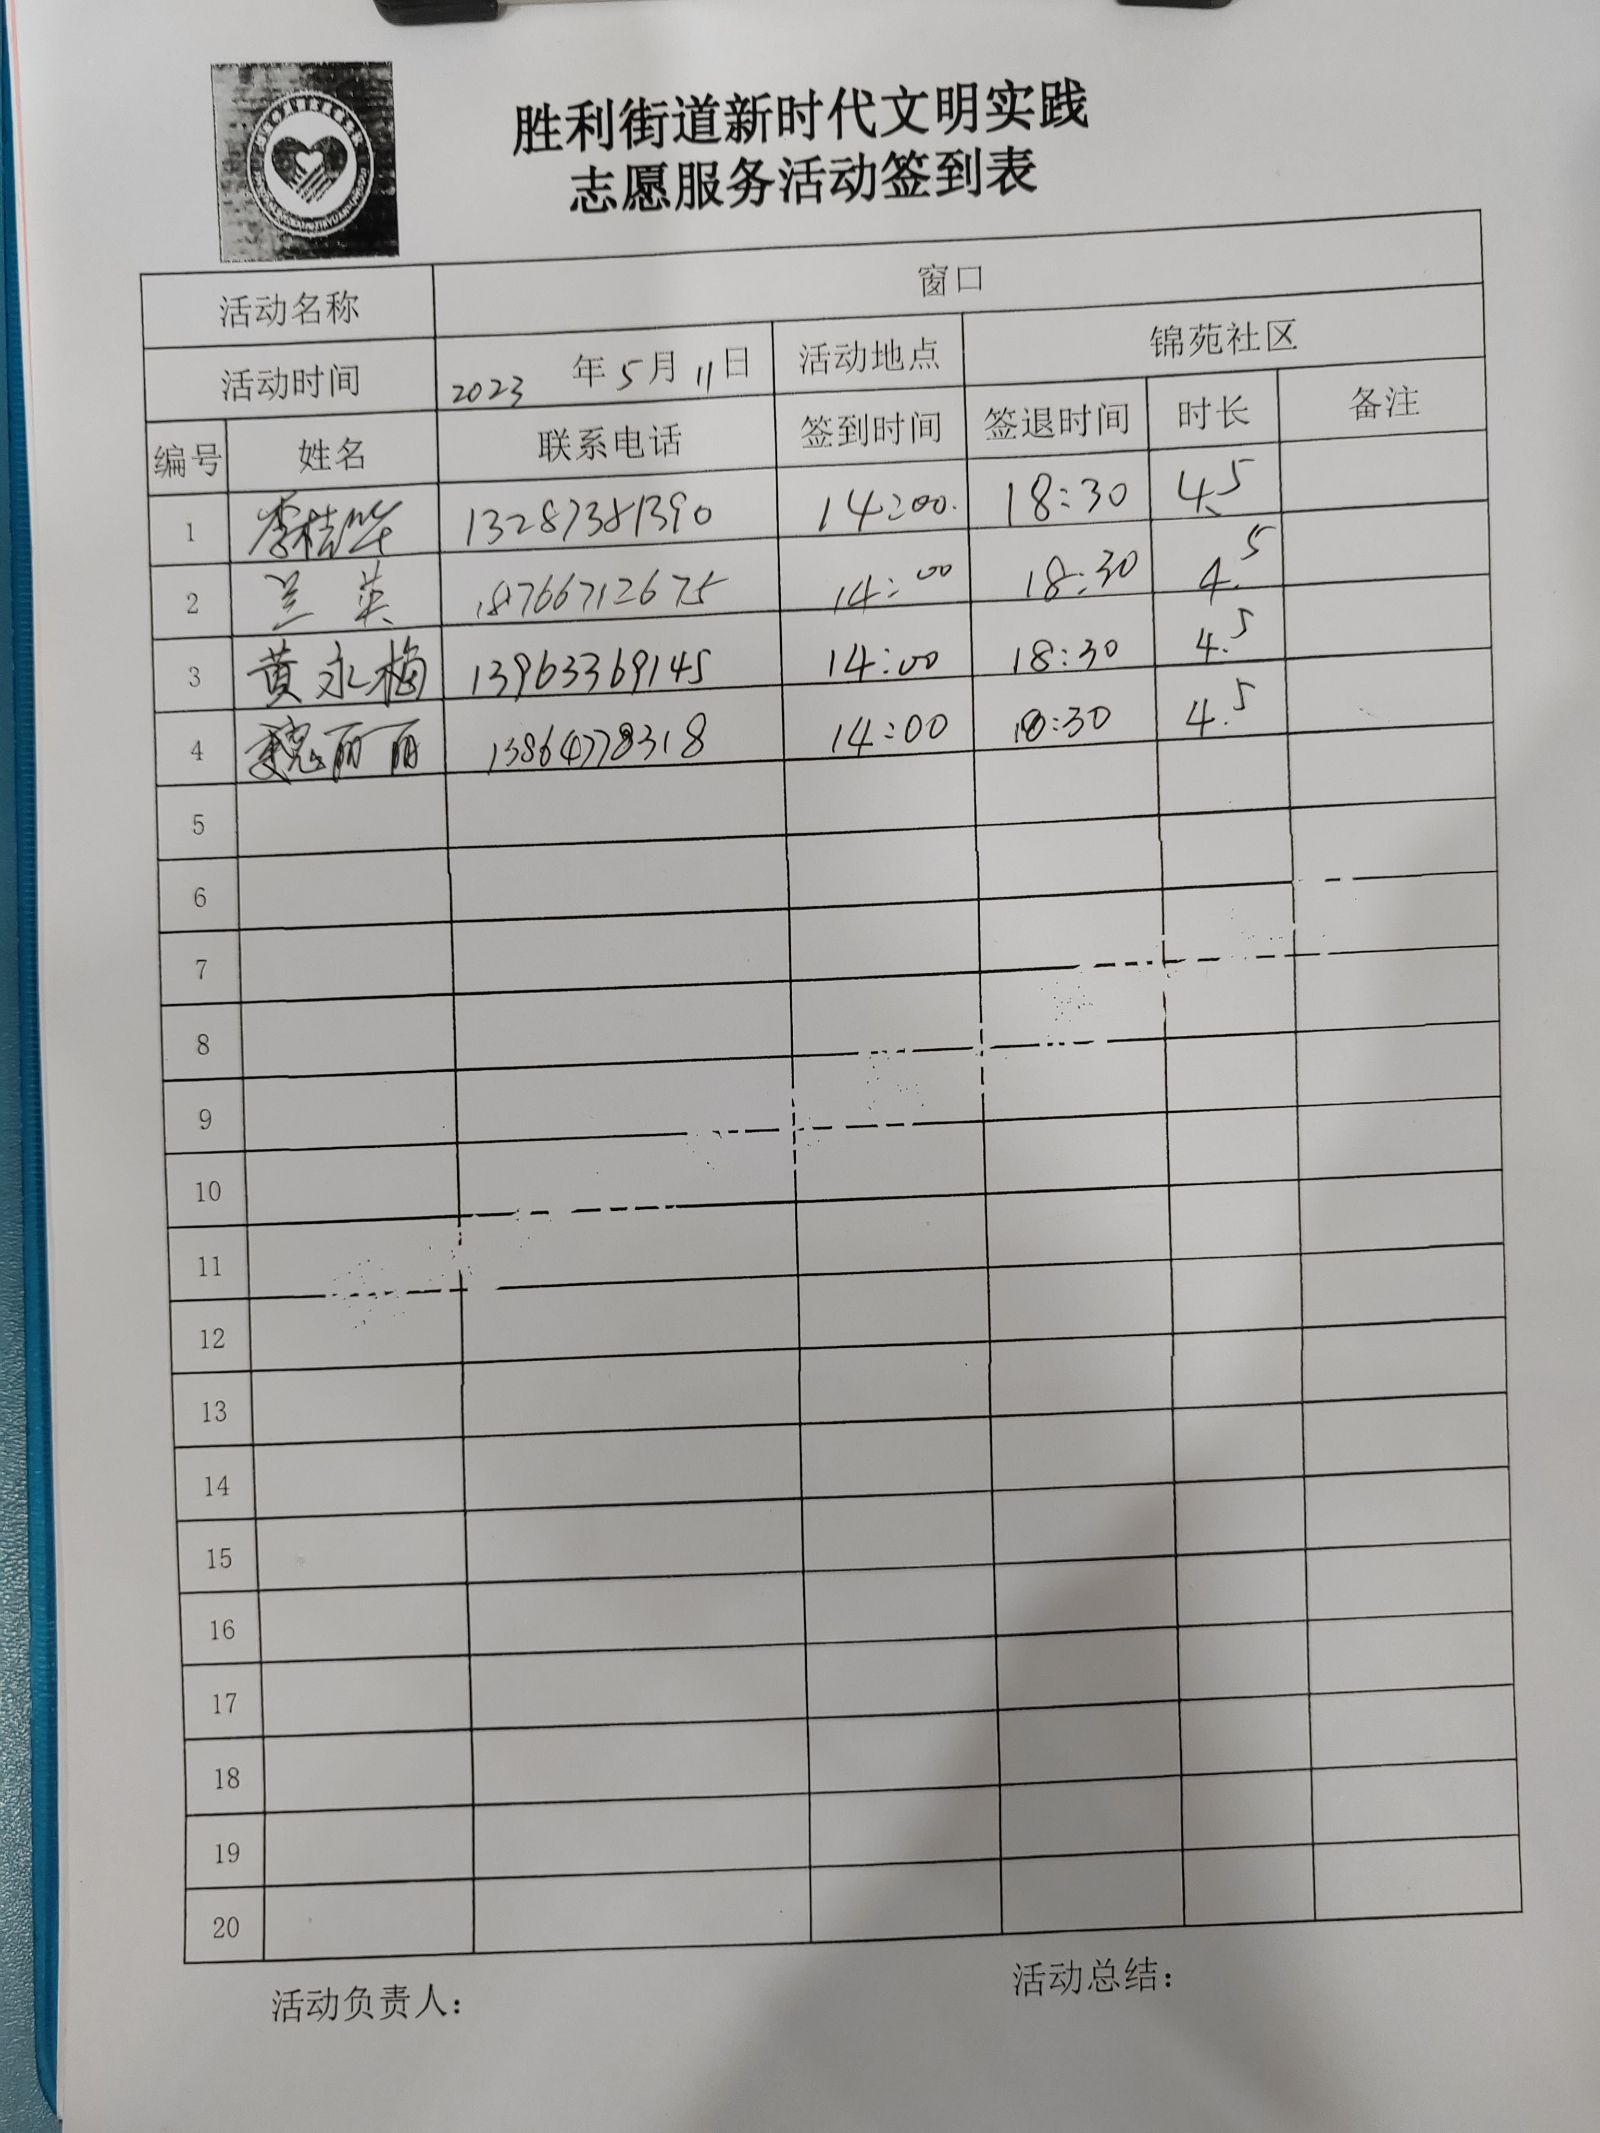 胜利街道新时代文明实践
志愿服务活动签到表
活动名称 窗口
活动时间 2023 年 5 月 11 日 活动地点 锦苑社区
编号 姓名 联系电话 签到时间 签退时间 时长 备注
1 李桂华 13287381390 14:00. 18:30 4.5
2 兰英 18766712675 14:00 18:30 4.5
3 黄永梅 13963369145 14:00 18:30 4.5
4 魏丽丽 13864778318 14:00 18:30 4.5
5
6
7
8
9
10
11
12
13
14
15
16
17
18
19
20
活动负责人： 活动总结：